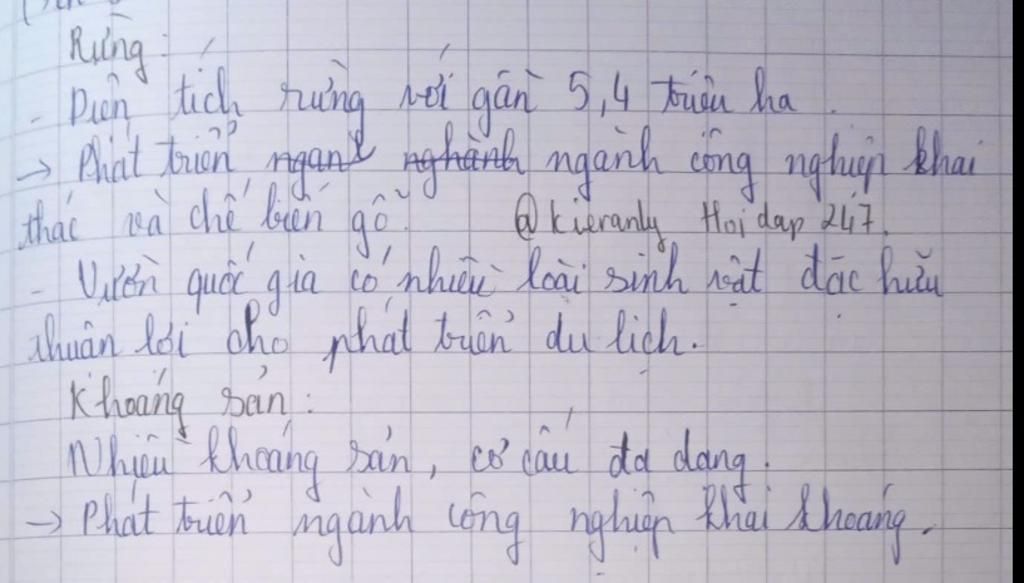 Rừng:
- Diện tích rừng với gần 5,4 triệu ha.
→ Phát triển ngành công nghiệp khai
thác và chế biến gỗ. @kieranly Hoidap 247.
- Vườn quốc gia có nhiều loài sinh vật đặc hữu
thuận lợi cho phát triển du lịch.
Khoáng sản:
Nhiều khoáng sản, cơ cấu đa dạng.
→ Phát triển ngành công nghiệp khai khoáng.